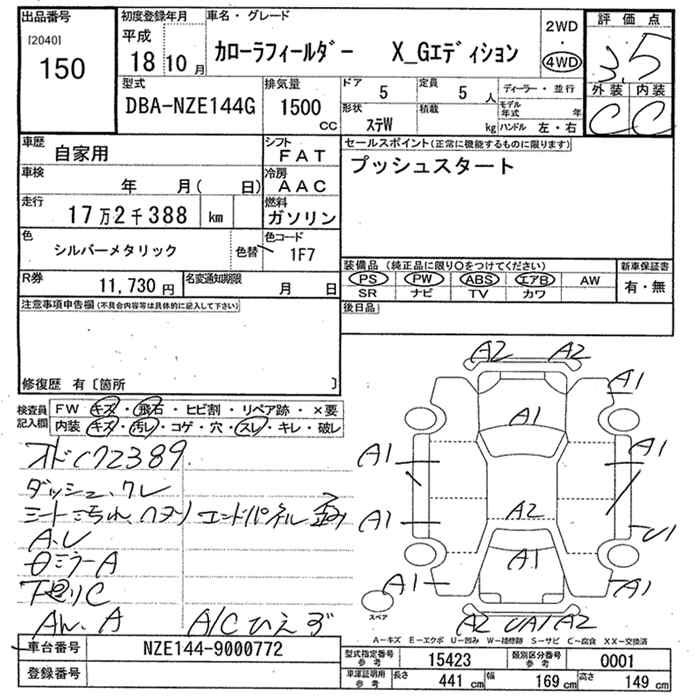 出品番号 初度登録年月 車名・グレード 2WD 評価点
[2040] 平成 ・ 3.5
150 18 10月 カローラフィールダー X_Gエディション 4WD
型式 排気量 ドア 定員 ディーラー・並行 外装 内装
DBA-NZE144G 1500 CC 5 5 人 モデル年式 年 C C
形状 積載
ステW kg ハンドル 左・右
車歴 シフト セールスポイント(正常に機能するものに限ります)
自家用 FAT プッシュスタート
車検 冷房
年 月( 日) AAC
走行 燃料
17万2千388 km ガソリン
色 色替 色コード
シルバーメタリック 1F7
R券 11,730円 名変通知期限 月 日
装備品 (純正品に限り○をつけてください) 新車保証書
PS PW ABS エアB AW 有・無
SR ナビ TV カワ
注意事項申告欄(不具合内容等は具体的に記入して下さい) 後日品
修復歴 有〔箇所 〕
検査員記入欄 FW キズ・飛石・ヒビ割・リペア跡・×要
内装 キズ・汚レ・コゲ・穴・スレ・キレ・破レ
172389
ダッシュ、クレ
エンドパネル歪み
A、U
ミラーA
下廻りC
A
A/Cひえず
A2 A2
A1
A1
A1 A1
A1 A2 U1
A1 A1 A1
A2 UA1 A2
スペア
A－キズ E－エクボ U－凹み W－補修跡 S－サビ C－腐食 XX－交換済
車台番号 NZE144-9000772
登録番号
型式指定番号 参考 15423 類別区分番号 参考 0001
車庫証明用 参考 長さ 441 cm 幅 169 cm 高さ 149 cm